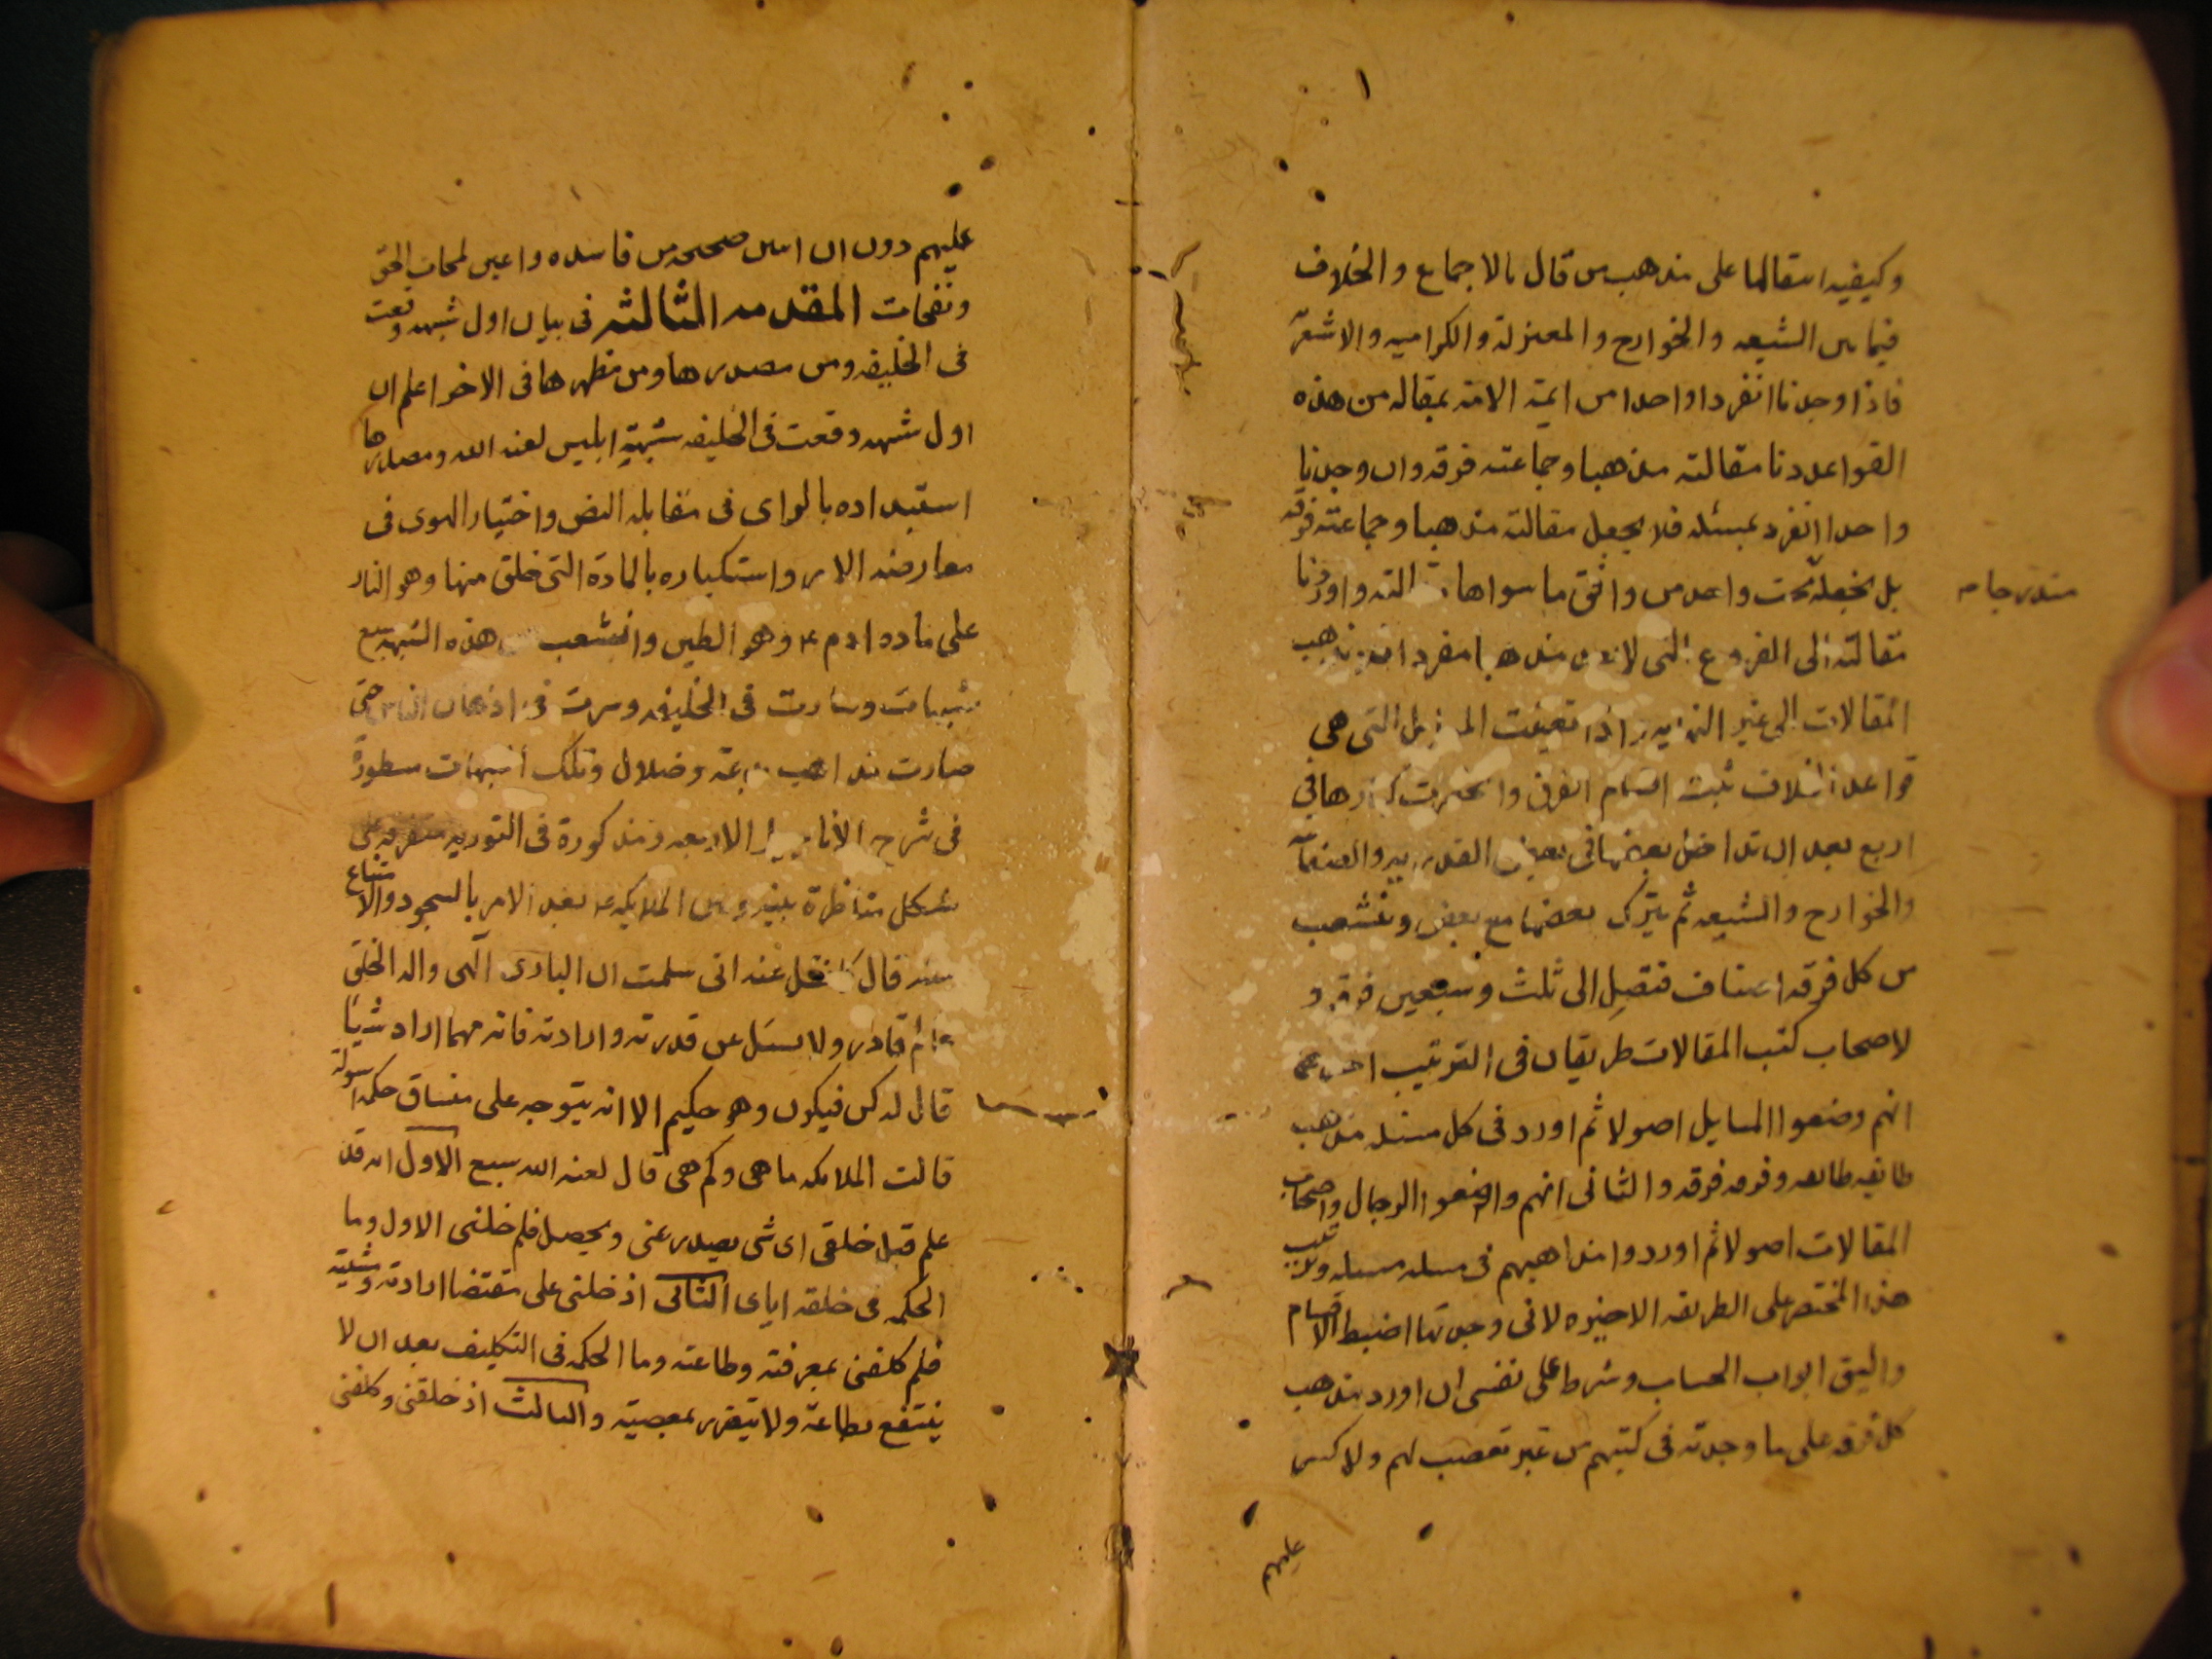 وكيفيه انتقالها على مذهب من قال بالاجماع والخلاف
فيما بين الشيعه والخوارج والمعتزلة والكراميه والاشعريّة
فاذا وجدنا انفرادا واحدا من ايمة الامة بمقاله من هذه
القواعد عددنا مقالته مذهبا وجماعته فرقه وان وجدنا
واحدا انفرد بمسئله فلا يجعل مقالته مذهبا وجماعته فرقه
بل نجعله تحت واحد من وافق ما سواها مقالته واوردنا
مندرجا مه
مقالته الى الفروع التى لا تعد مذهبا مفردا فلا يذهب
المقالات الى غير النهايه واذا تعينت المسايل التى هى
قواعد الخلاف تبينت اقسام الفرق وانحصرت كبارها فى
اربع بعد ان تداخل بعضها فى بعض القدريه والصفاتيّه
والخوارج والشيعه ثم يتركب بعضها مع بعض وتتشعب
من كل فرقه اصناف فتصل الى ثلث وسبعين فرقه و
لاصحاب كتب المقالات طريقان فى الترتيب احدهما
انهم وضعوا المسايل اصولا ثم اورد فى كل مسئله مذهب
طايفه طايفه وفرقه فرقه والثانى انهم واضعوا الرجال واصحاب
المقالات اصولا ثم اوردوا مذاهبهم فى مسله مسله وترتيب
هذا المختصر على الطريقه الاخيره لانى وجدتها اضبط الاقسام
واليق ابواب الحساب وشرط على نفسى ان اورد مذهب
كل فرقه على ما وجدته فى كتبهم من غير تعصب لهم ولا كسر
عليهم
عليهم دون ان ابين صحيحه من فاسده واعين لمحات الحق
ونفحات المقدمه الثالثه فى بيان اول شبهه وقعت
فى الخليقه ومن مصدرها ومن مظهرها فى الاخر اعلم ان
اول شبهه وقعت فى الخليقه شبهة ابليس لعنه الله ومصدرها
استبداده بالراى فى مقابله النص واختيار الهوى فى
معارضه الامر واستكباره بالمادة التى خلق منها وهو النار
على ماده ادم ع وهو الطين وانشعب من هذه الشبهه سبع
شبهات وسارت فى الخليقه وسرت فى اذهان الناس حتى
صارت مذاهب بدعة وضلال وتلك الشبهات مسطورة
فى شرح الاناجيل الاربعه ومذكورة فى التوريه متفرقه على
شكل مناظرة بينه وبين الملايكه بعد الامر بالسجود والامتناع
منه قال كما نقل عنه انى سلمت ان البارى الهى واله الخلق
عالم قادر ولا يسئل عن قدرته وارادته فانه مهما اراد شيئا
قال له كن فيكون وهو حكيم الا انه يتوجه على مساق حكمه اسولة
قالت الملايكه ما هى وكم هى قال لعنه الله سبع الاول انه قد
علم قبل خلقى اى شى يصدر عنى ويحصل فلم خلقنى الاول وما
الحكمه فى خلقه اياى الثانى اذ خلقنى على مقتضا ارادته ومشيته
فلم كلفنى بمعرفته وطاعته وما الحكمه فى التكليف بعد ان لا
ينتفع بطاعة ولا يتضرر بمعصيته والثالث اذ خلقنى وكلفنى